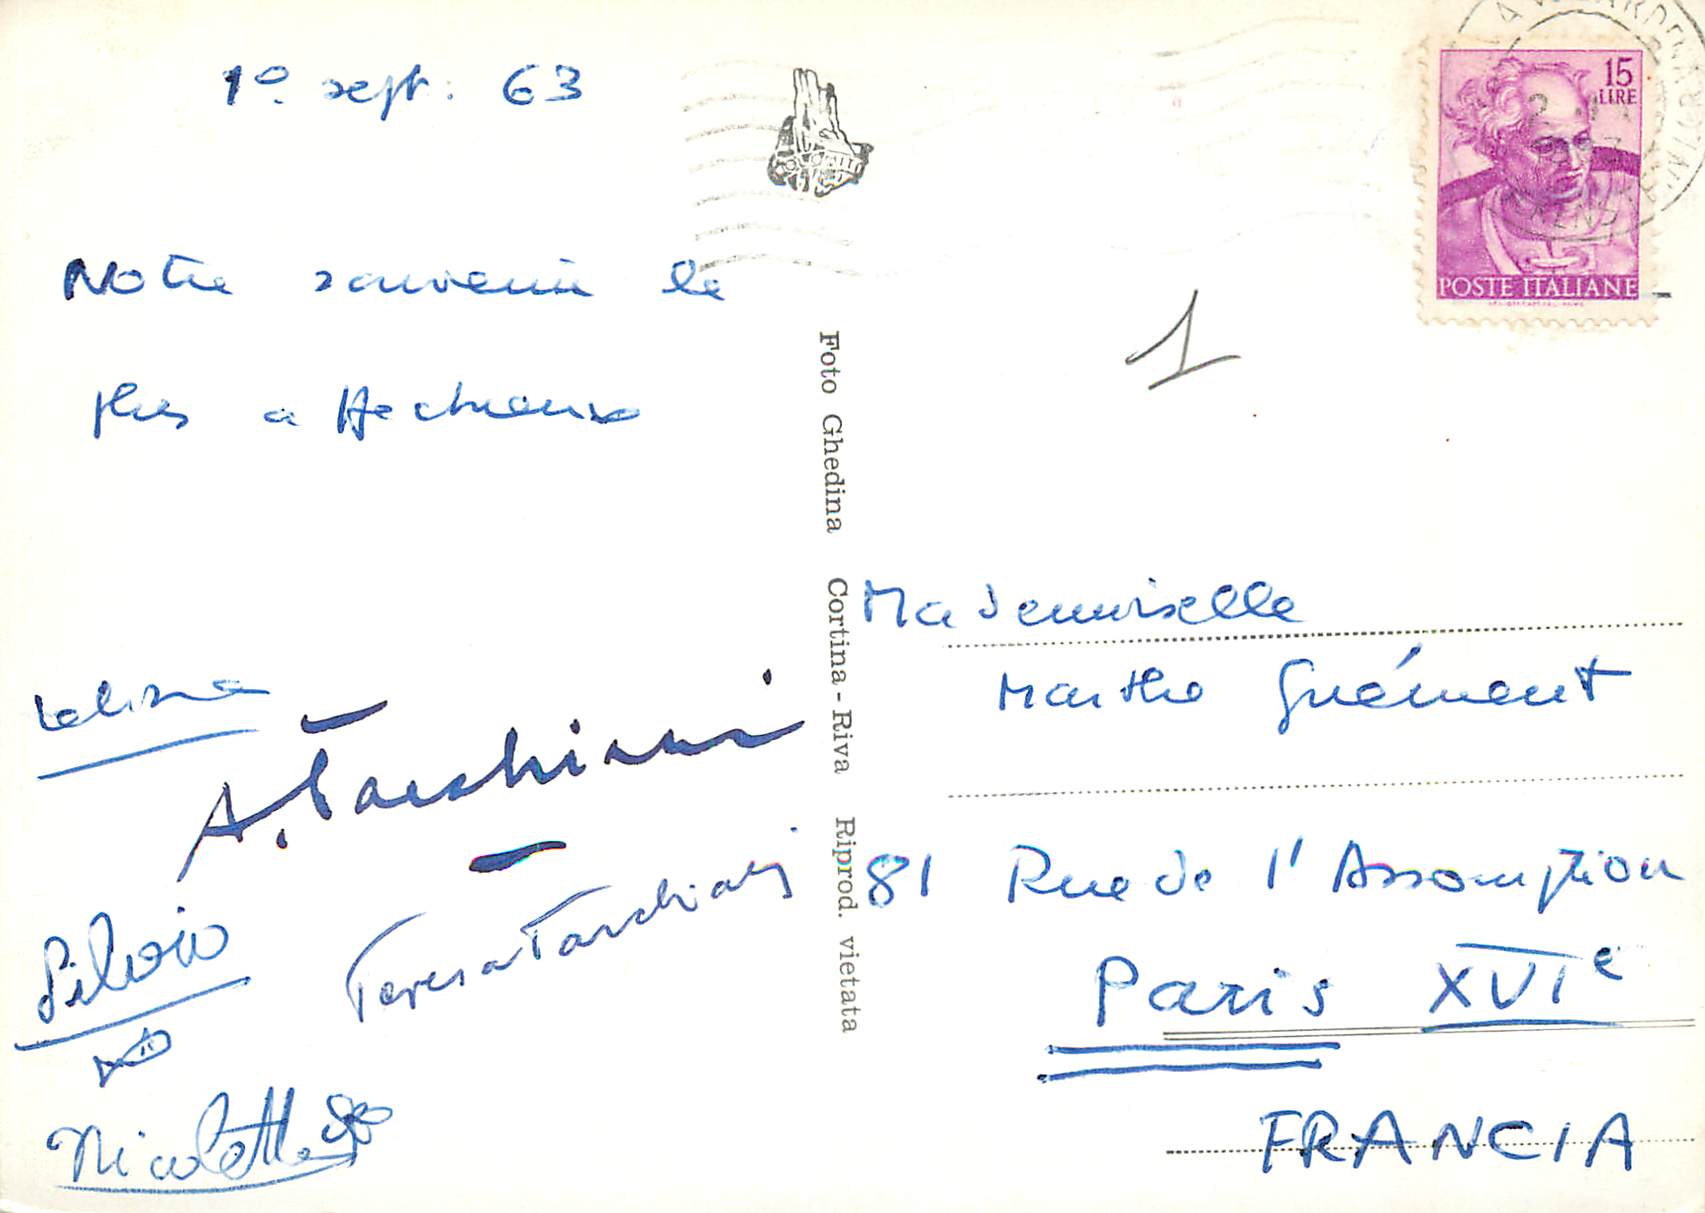 1º sept: 63
Notre souvenir le
plus affectueux
A. Tarchiani
Teresa Tarchiani
Silvio
Nicoletta
DOLOMITI
Foto Ghedina Cortina-Riva Riprod. vietata
15
LIRE
POSTE ITALIANE
1
Mademoiselle
Marthe Guément
81 Rue de l'Assomption
Paris XVIe
FRANCIA